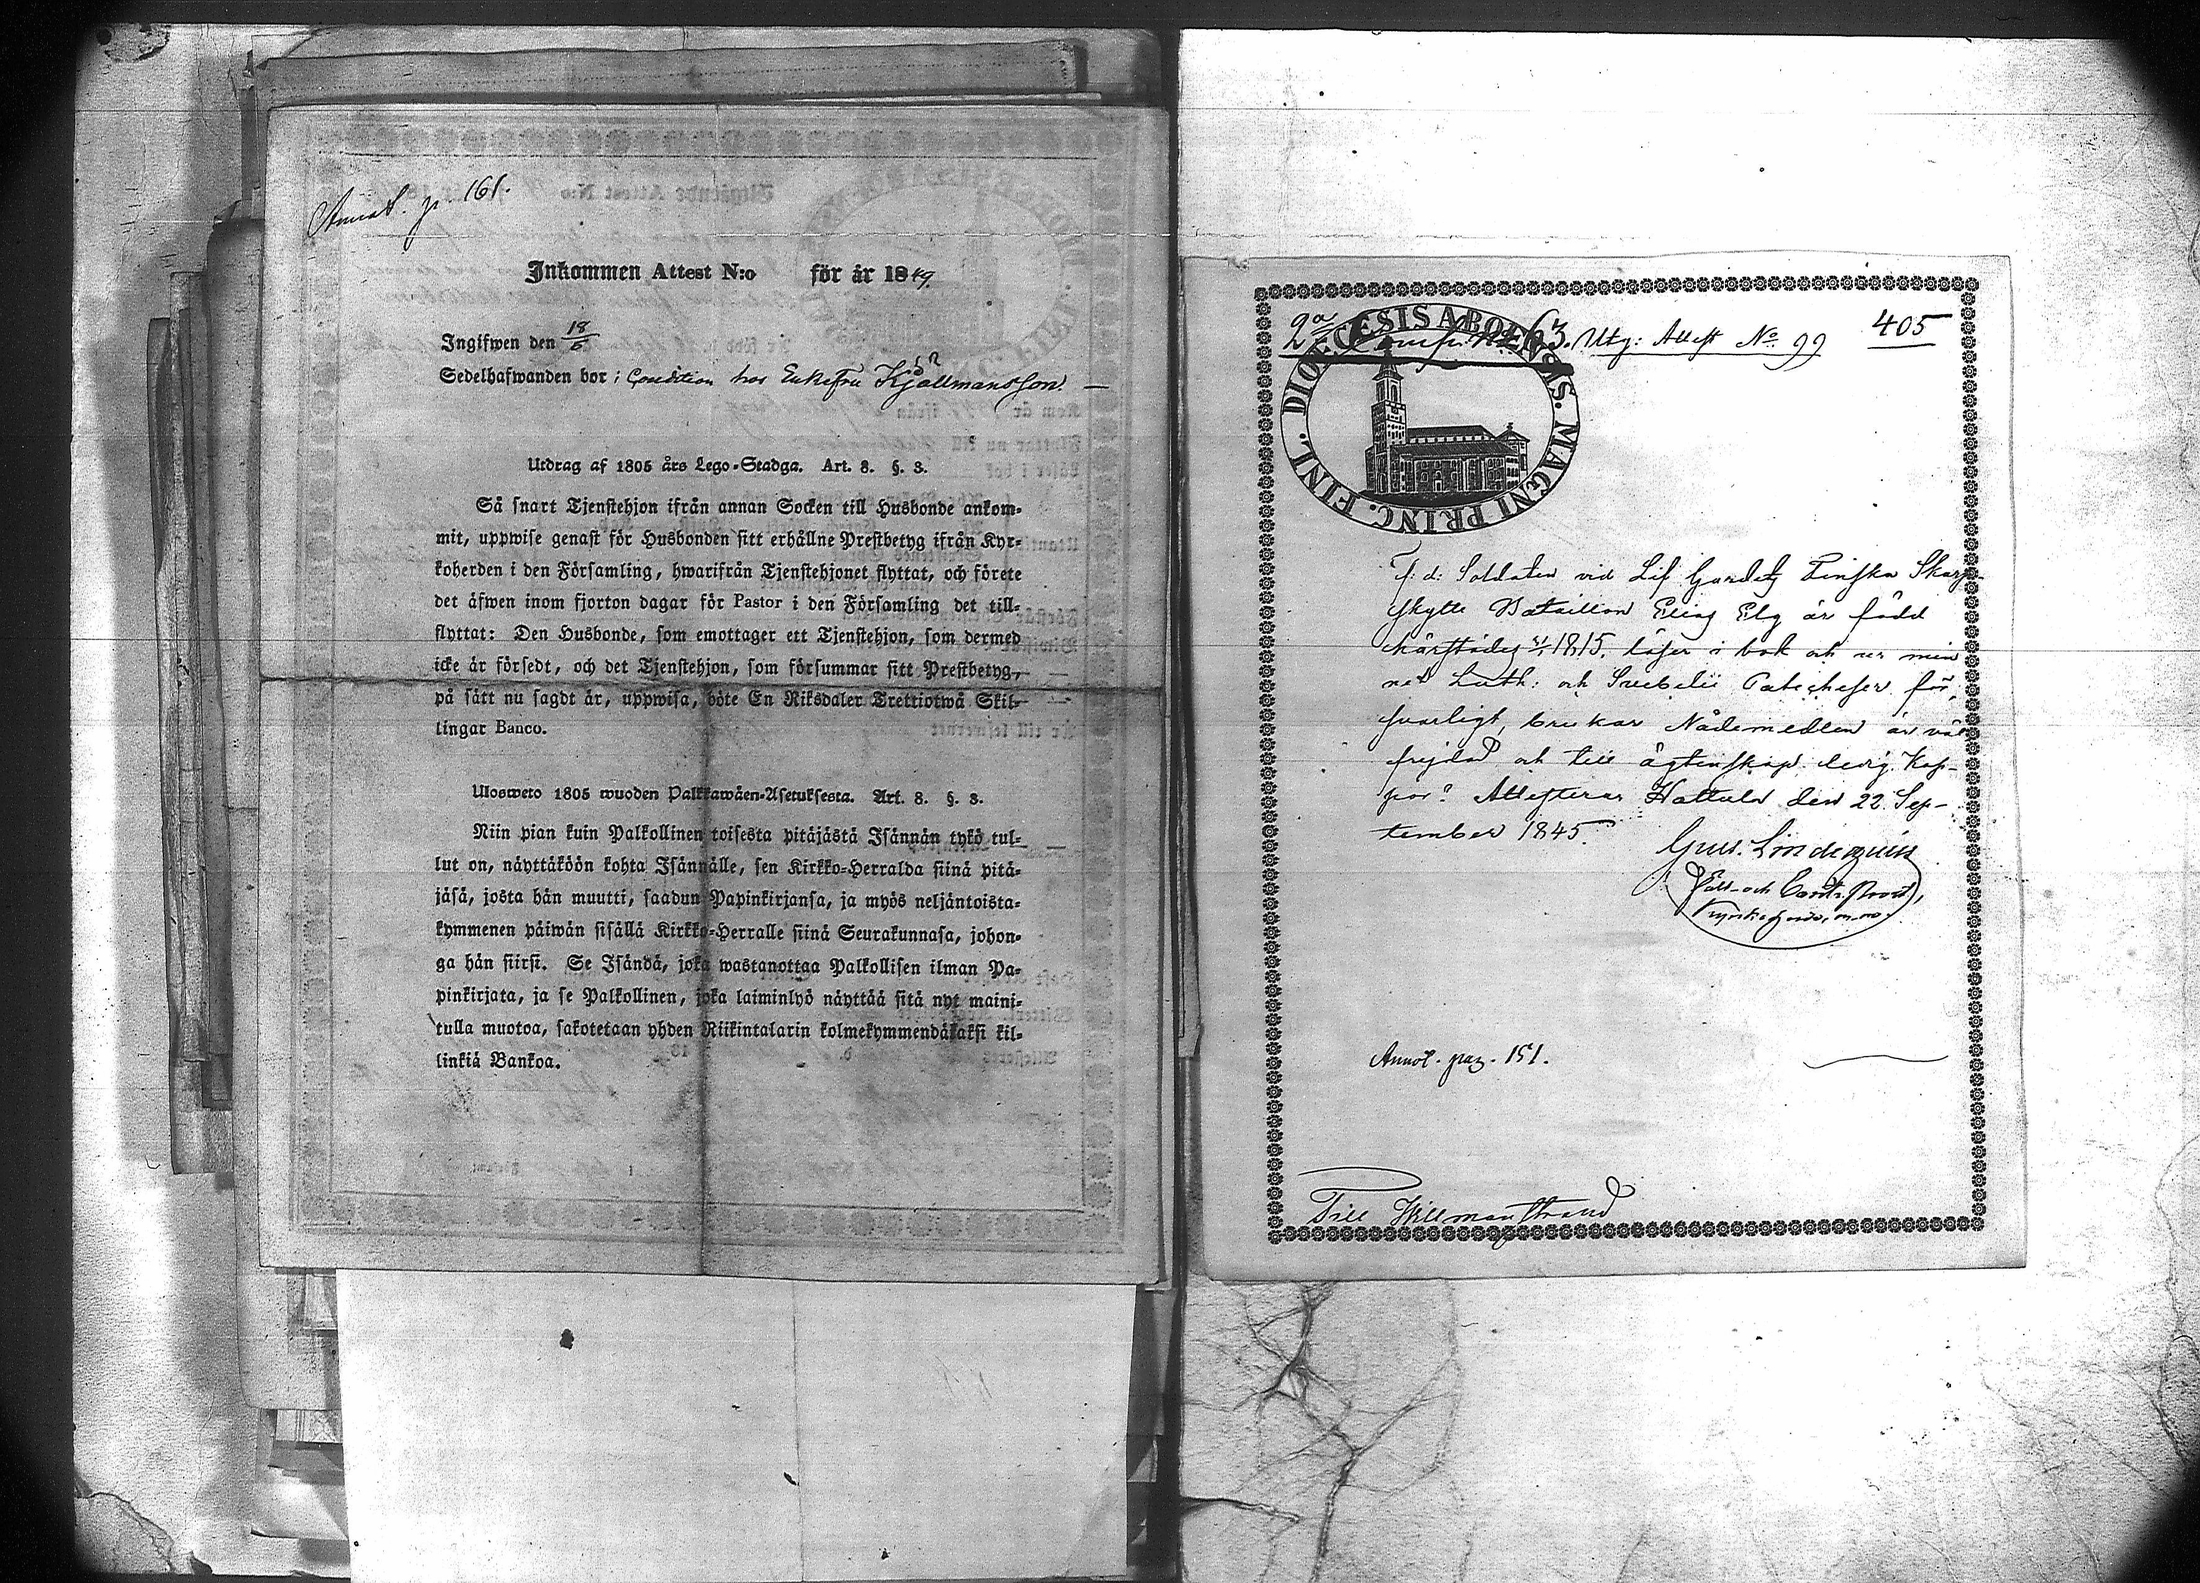 Annot. p. 161.
Inkommen Attest N:o för år 1849.
Ingifwen den 18/6
Sedelhafwanden bor i Condition hos Enkefru Kjöllmansson.
Utdrag af 1805 års Lego-Stadga. Art. 8. §. 3.
Så snart Tjenstehjon ifrån annan Socken till Husbonde ankom-
mit, uppwise genast för Husbonden sitt erhållne Prestbetyg ifrån Kyr-
koherden i den Församling, hwarifrån Tjenstehjonet flyttat, och förete
det äfwen inom fjorton dagar för Pastor i den Församling det till-
flyttat: Den Husbonde, som emottager ett Tjenstehjon, som dermed
icke är försedt, och det Tjenstehjon, som försummar sitt Prestbetyg,
på sätt nu sagdt är, uppwisa, böte En Riksdaler Trettiotwå Skil-
lingar Banco.
Ulosweto 1805 wuoden Palkkawäen-Asetuksesta. Art. 8. §. 3.
Niin pian kuin Palkollinen toisesta pitäjästä Isännän tykö tul-
lut on, näyttäköön kohta Isännälle, sen Kirkko-Herralda siinä pitä-
jäsä, josta hän muutti, saadun Papinkirjansa, ja myös neljäntoista-
kymmenen päiwän sisällä Kirkko-Herralle siinä Seurakunnasa, johon-
ga hän siirsi. Se Isändä, joka wastanottaa Palkollisen ilman Pa-
pinkirjata, ja se Palkollinen, joka laiminlyö näyttää sitä nyt maini-
tulla muotoa, sakotetaan yhden Riikintalarin kolmekymmendäkaksi kil-
linkiä Bankoa.
405
63. Utg: Attest No. 99
DIOECESIS ABOENSIS. MAGNI PRINC. FINL.
F: d: Soldaten vid Lif Gardets Finska Skarp-
skytte Bataillon Elias Elg är född
härstädes 1815, läser i bok och ur min
net Luth: och Svebelii Catecheser för-
svarligt, brukar Nådemedlen är väl
frejdad och till ägtenskap ledig. Kop-
por? Attesterar Hattula den 22 Sep-
tember 1845.
Gus. Lindequist
Fält- och Contr. Prost,
Kyrkoherde, m.m.
Annot. pag. 151.
Till Willmanstrand